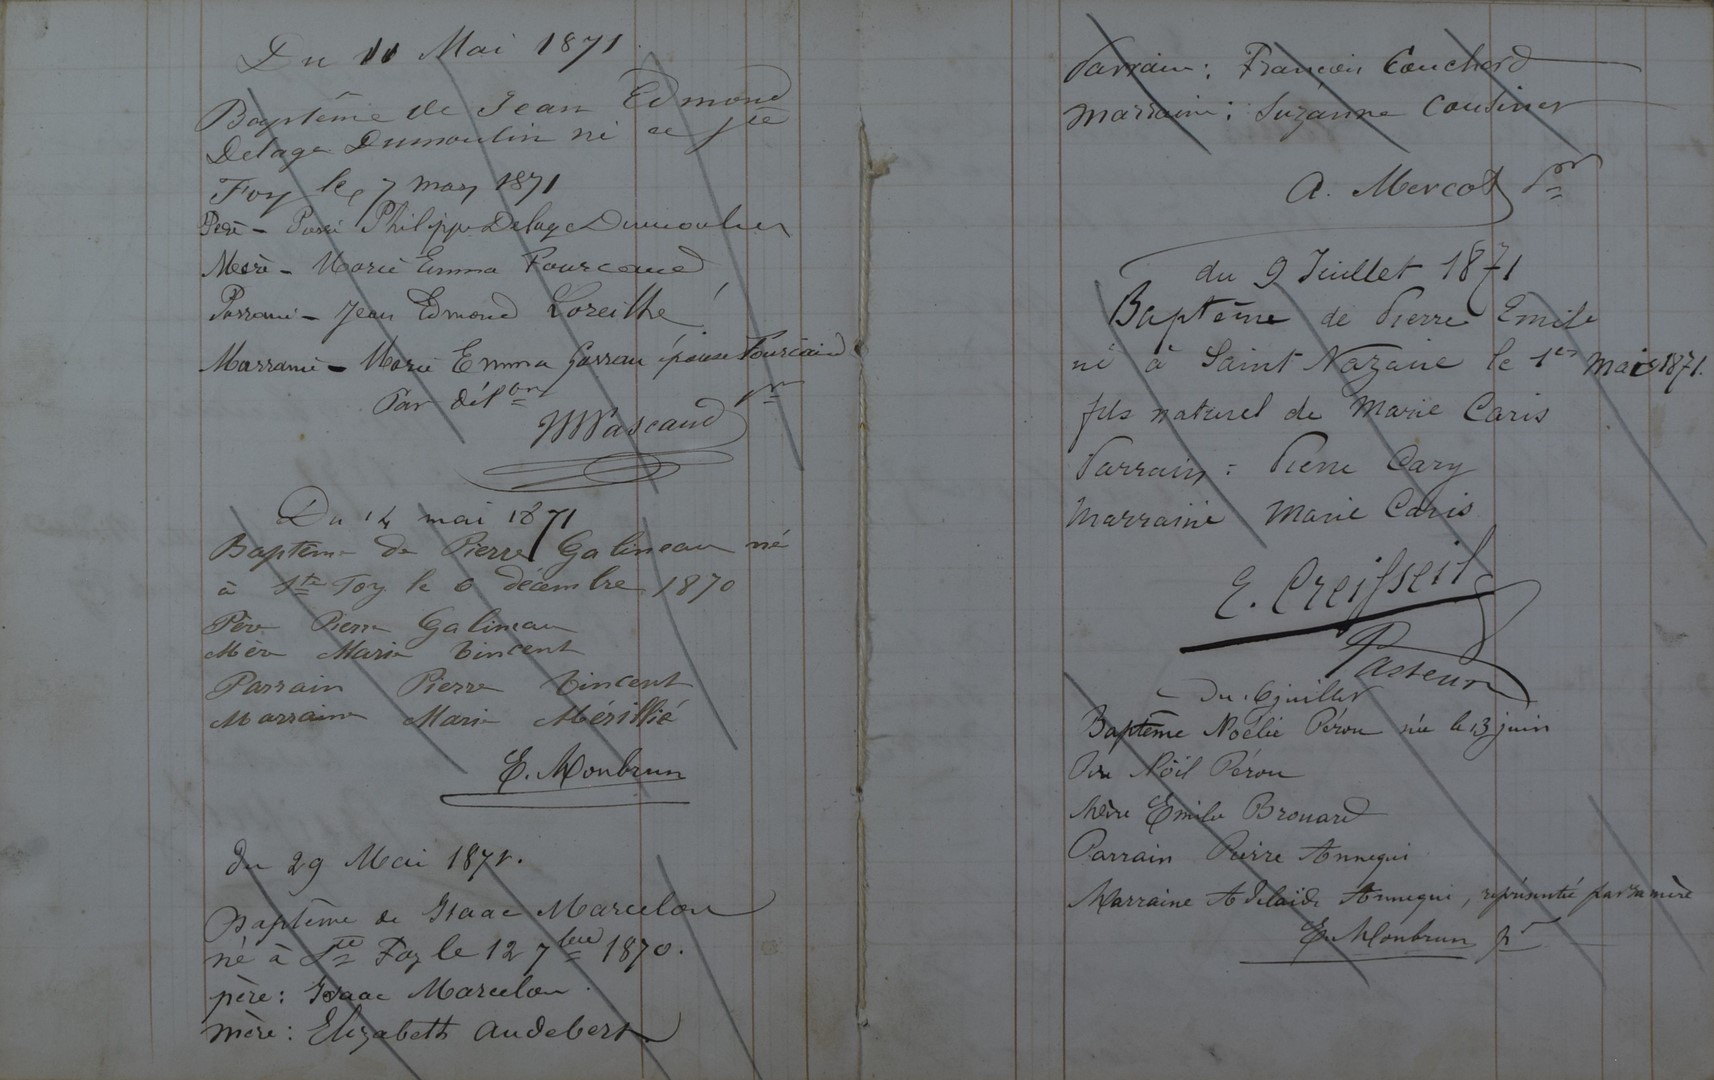 Du 11 Mai 1871.
Baptême de Jean Edmond
Delage Dumoulin né a Ste
Foy le 7 may 1871
Père - Philippe Delage Dumoulin
Mère - Marie Emma Fourcaud
Parrain - Jean Edmond Loreilhe
Marraine - Marie Emma Garreau épouse Fourcaud
Par dél.on
Du 14 mai 1871
Baptême de Pierre Galineau né
à Ste Foy le 6 décembre 1870
Père Pierre Galineau
Mère Marie Vincent
Parrain Pierre Vincent
Marraine Marie Mérillié
E. Monbrun
du 29 Mai 1871.
Baptême de Isaac Marcelou
né à Ste Foy le 12 7bre 1870.
père: Isaac Marcelou.
mère: Elizabeth Audebert
Parrain: François Couchard
Marraine: Suzanne Cousiner
A. Mercat pr
du 9 Juillet 1871
Baptême de Pierre Emile
né à Saint Nazaire le 1er mai 1871.
fils naturel de Marie Caris
Parrain: Pierre Cary
Marraine Marie Caris
E. Creisseil
Pasteur
Du 6 juillet
Baptême Noélie Pérou née le 13 juin
Père Nöil Pérou
Mère Emilie Brouard
Parrain Pierre Annequi
Marraine Adelaïde Annequi, représentée par sa mère
E. Monbrun pr